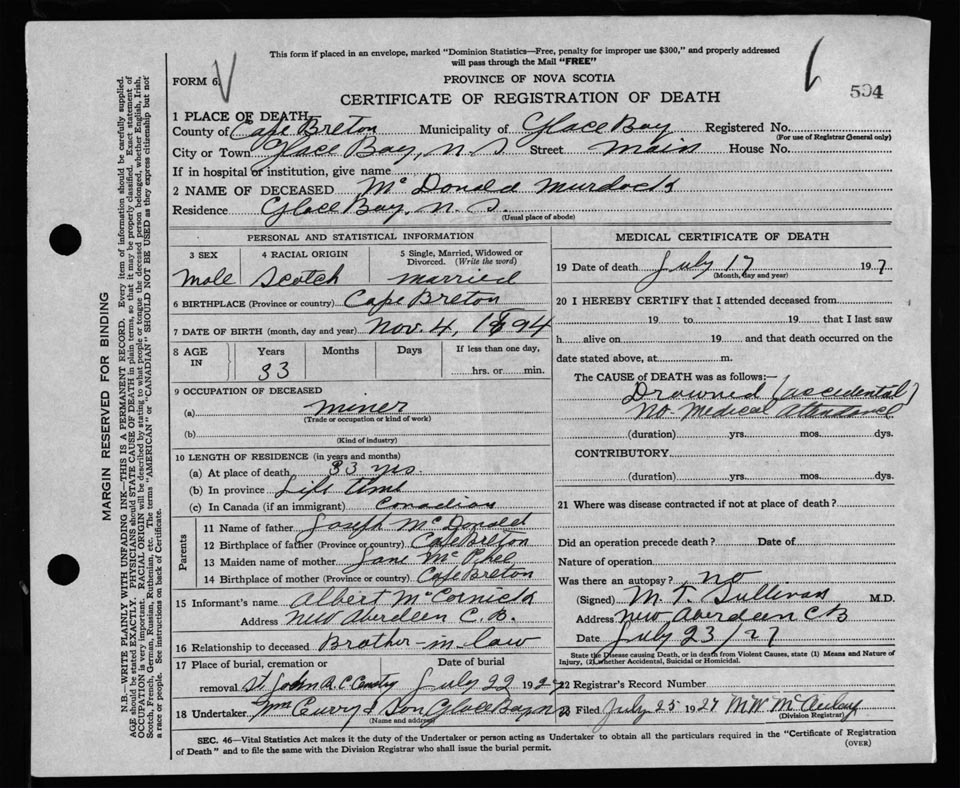 This form if placed in an envelope, marked "Dominion Statistics—Free, penalty for improper use $300," and properly addressed
will pass through the Mail "FREE"
FORM 6.
PROVINCE OF NOVA SCOTIA
504
CERTIFICATE OF REGISTRATION OF DEATH
1 PLACE OF DEATH
County of Cape Breton Municipality of Glace Bay Registered No.
(For use of Registrar General only)
City or Town Glace Bay, N. S. Street Main House No.
If in hospital or institution, give name
2 NAME OF DECEASED McDonald Murdock
Residence Glace Bay, N. S.
(Usual place of abode)
PERSONAL AND STATISTICAL INFORMATION
3 SEX 4 RACIAL ORIGIN 5 Single, Married, Widowed or
Divorced. (Write the word)
Male Scotch Married
6 BIRTHPLACE (Province or country) Cape Breton
7 DATE OF BIRTH (month, day and year) Nov. 4, 1894
8 AGE IN Years Months Days If less than one day,
33 hrs. or min.
9 OCCUPATION OF DECEASED
(a) Miner
(Trade or occupation or kind of work)
(b)
(Kind of industry)
10 LENGTH OF RESIDENCE (in years and months)
(a) At place of death 33 yrs.
(b) In province Life time
(c) In Canada (if an immigrant) Canadian
Parents
11 Name of father Joseph McDonald
12 Birthplace of father (Province or country) Cape Breton
13 Maiden name of mother Jane McPhel
14 Birthplace of mother (Province or country) Cape Breton
15 Informant's name Albert McCormick
Address New Aberdeen C. B.
16 Relationship to deceased Brother-in-law
17 Place of burial, cremation or Date of burial
removal St. John R. C. July 22 1927
18 Undertaker Wm Curry & Son Glace Bay N
(Name and address)
MEDICAL CERTIFICATE OF DEATH
19 Date of death July 17 192 7
(Month, day and year)
20 I HEREBY CERTIFY that I attended deceased from
19 to 19 that I last saw
h alive on 19 and that death occurred on the
date stated above, at m.
The CAUSE of DEATH was as follows:—
Drowned (accidental)
No Medical Attendance
(duration) yrs. mos. dys.
CONTRIBUTORY
(duration) yrs. mos. dys.
21 Where was disease contracted if not at place of death?
Did an operation precede death? Date of
Nature of operation
Was there an autopsy? no
(Signed) M. T. Sullivan M.D.
Address New Aberdeen CB
Date July 23/27
State the Disease causing Death, or in death from Violent Causes, state (1) Means and Nature of
Injury, (2) whether Accidental, Suicidal or Homicidal.
22 Registrar's Record Number
23 Filed July 25 1927 M.W. McAulay
(Division Registrar)
SEC. 46—Vital Statistics Act makes it the duty of the Undertaker or person acting as Undertaker to obtain all the particulars required in the "Certificate of Registration
of Death" and to file the same with the Division Registrar who shall issue the burial permit.
(OVER)
MARGIN RESERVED FOR BINDING
N.B.—WRITE PLAINLY WITH UNFADING INK—THIS IS A PERMANENT RECORD. Every item of information should be carefully supplied.
AGE should be stated EXACTLY. PHYSICIANS should STATE CAUSE OF DEATH in plain terms, so that it may be properly classified. Exact statement of
OCCUPATION is very important. RACIAL ORIGIN will be described by stating to what people or tongue the deceased person belonged, whether English, Irish,
Scotch, French, German, Russian, Ruthenian, etc. The terms "AMERICAN" or "CANADIAN" SHOULD NOT BE USED as they express citizenship but not
a race or people. See instructions on back of Certificate.